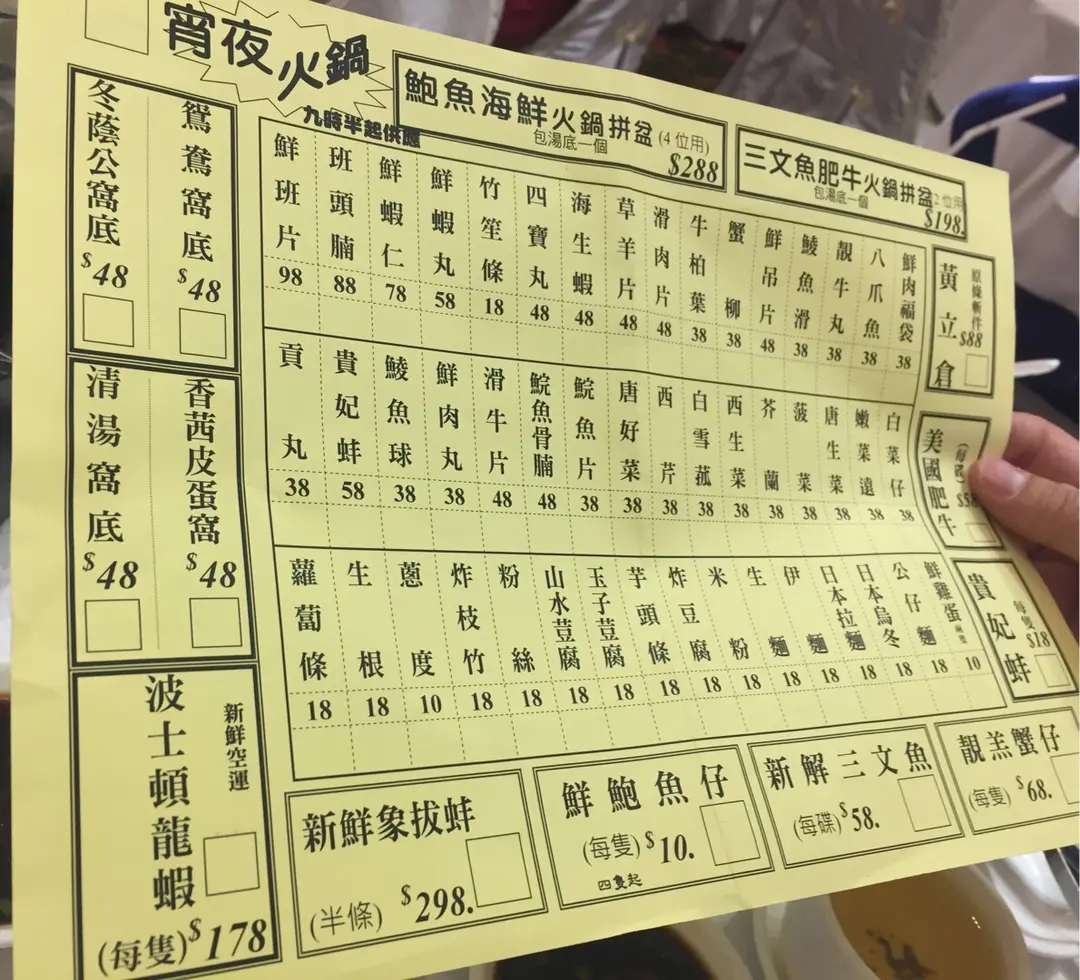 宵夜火鍋
九時半起供應
鮑魚海鮮火鍋拼盆(4位用)
包湯底一個
$288
三文魚肥牛火鍋拼盆(2位用
包湯底一個
$198.
冬蔭公窩底
$48
鴛鴦窩底
$48
清湯窩底
$48
香茜皮蛋窩
$48
波士頓龍蝦
新鮮空運
(每隻)$178
鮮班片 98
班頭腩 88
鮮蝦仁 78
鮮蝦丸 58
竹笙條 18
四寶丸 48
海生蝦 48
草羊片 48
滑肉片 48
牛柏葉 38
蟹柳 38
鮮吊片 48
鯪魚滑 38
靚牛丸 38
八爪魚 38
鮮肉福袋 38
貢丸 38
貴妃蚌 58
鯪魚球 38
鮮肉丸 38
滑牛片 48
鯇魚骨腩 48
鯇魚片 38
唐好菜 38
西芹 38
白雪菰 38
西生菜 38
芥蘭 38
菠菜 38
唐生菜 38
嫩菜遠 38
白菜仔 38
蘿蔔條 18
生根 18
蔥度 10
炸枝竹 18
粉絲 18
山水荳腐 18
玉子荳腐 18
芋頭條 18
炸豆腐 18
米粉 18
生麵 18
伊麵 18
日本拉麵 18
日本烏冬 18
公仔麵 18
鮮雞蛋 10
黃立倉
$88
美國肥牛
(每碟)
$58
貴妃蚌
每隻
$18
新鮮象拔蚌
(半條) $298.
鮮鮑魚仔
(每隻) $10.
四隻起
新解三文魚
(每碟) $58.
靚羔蟹仔
(每隻) $68.